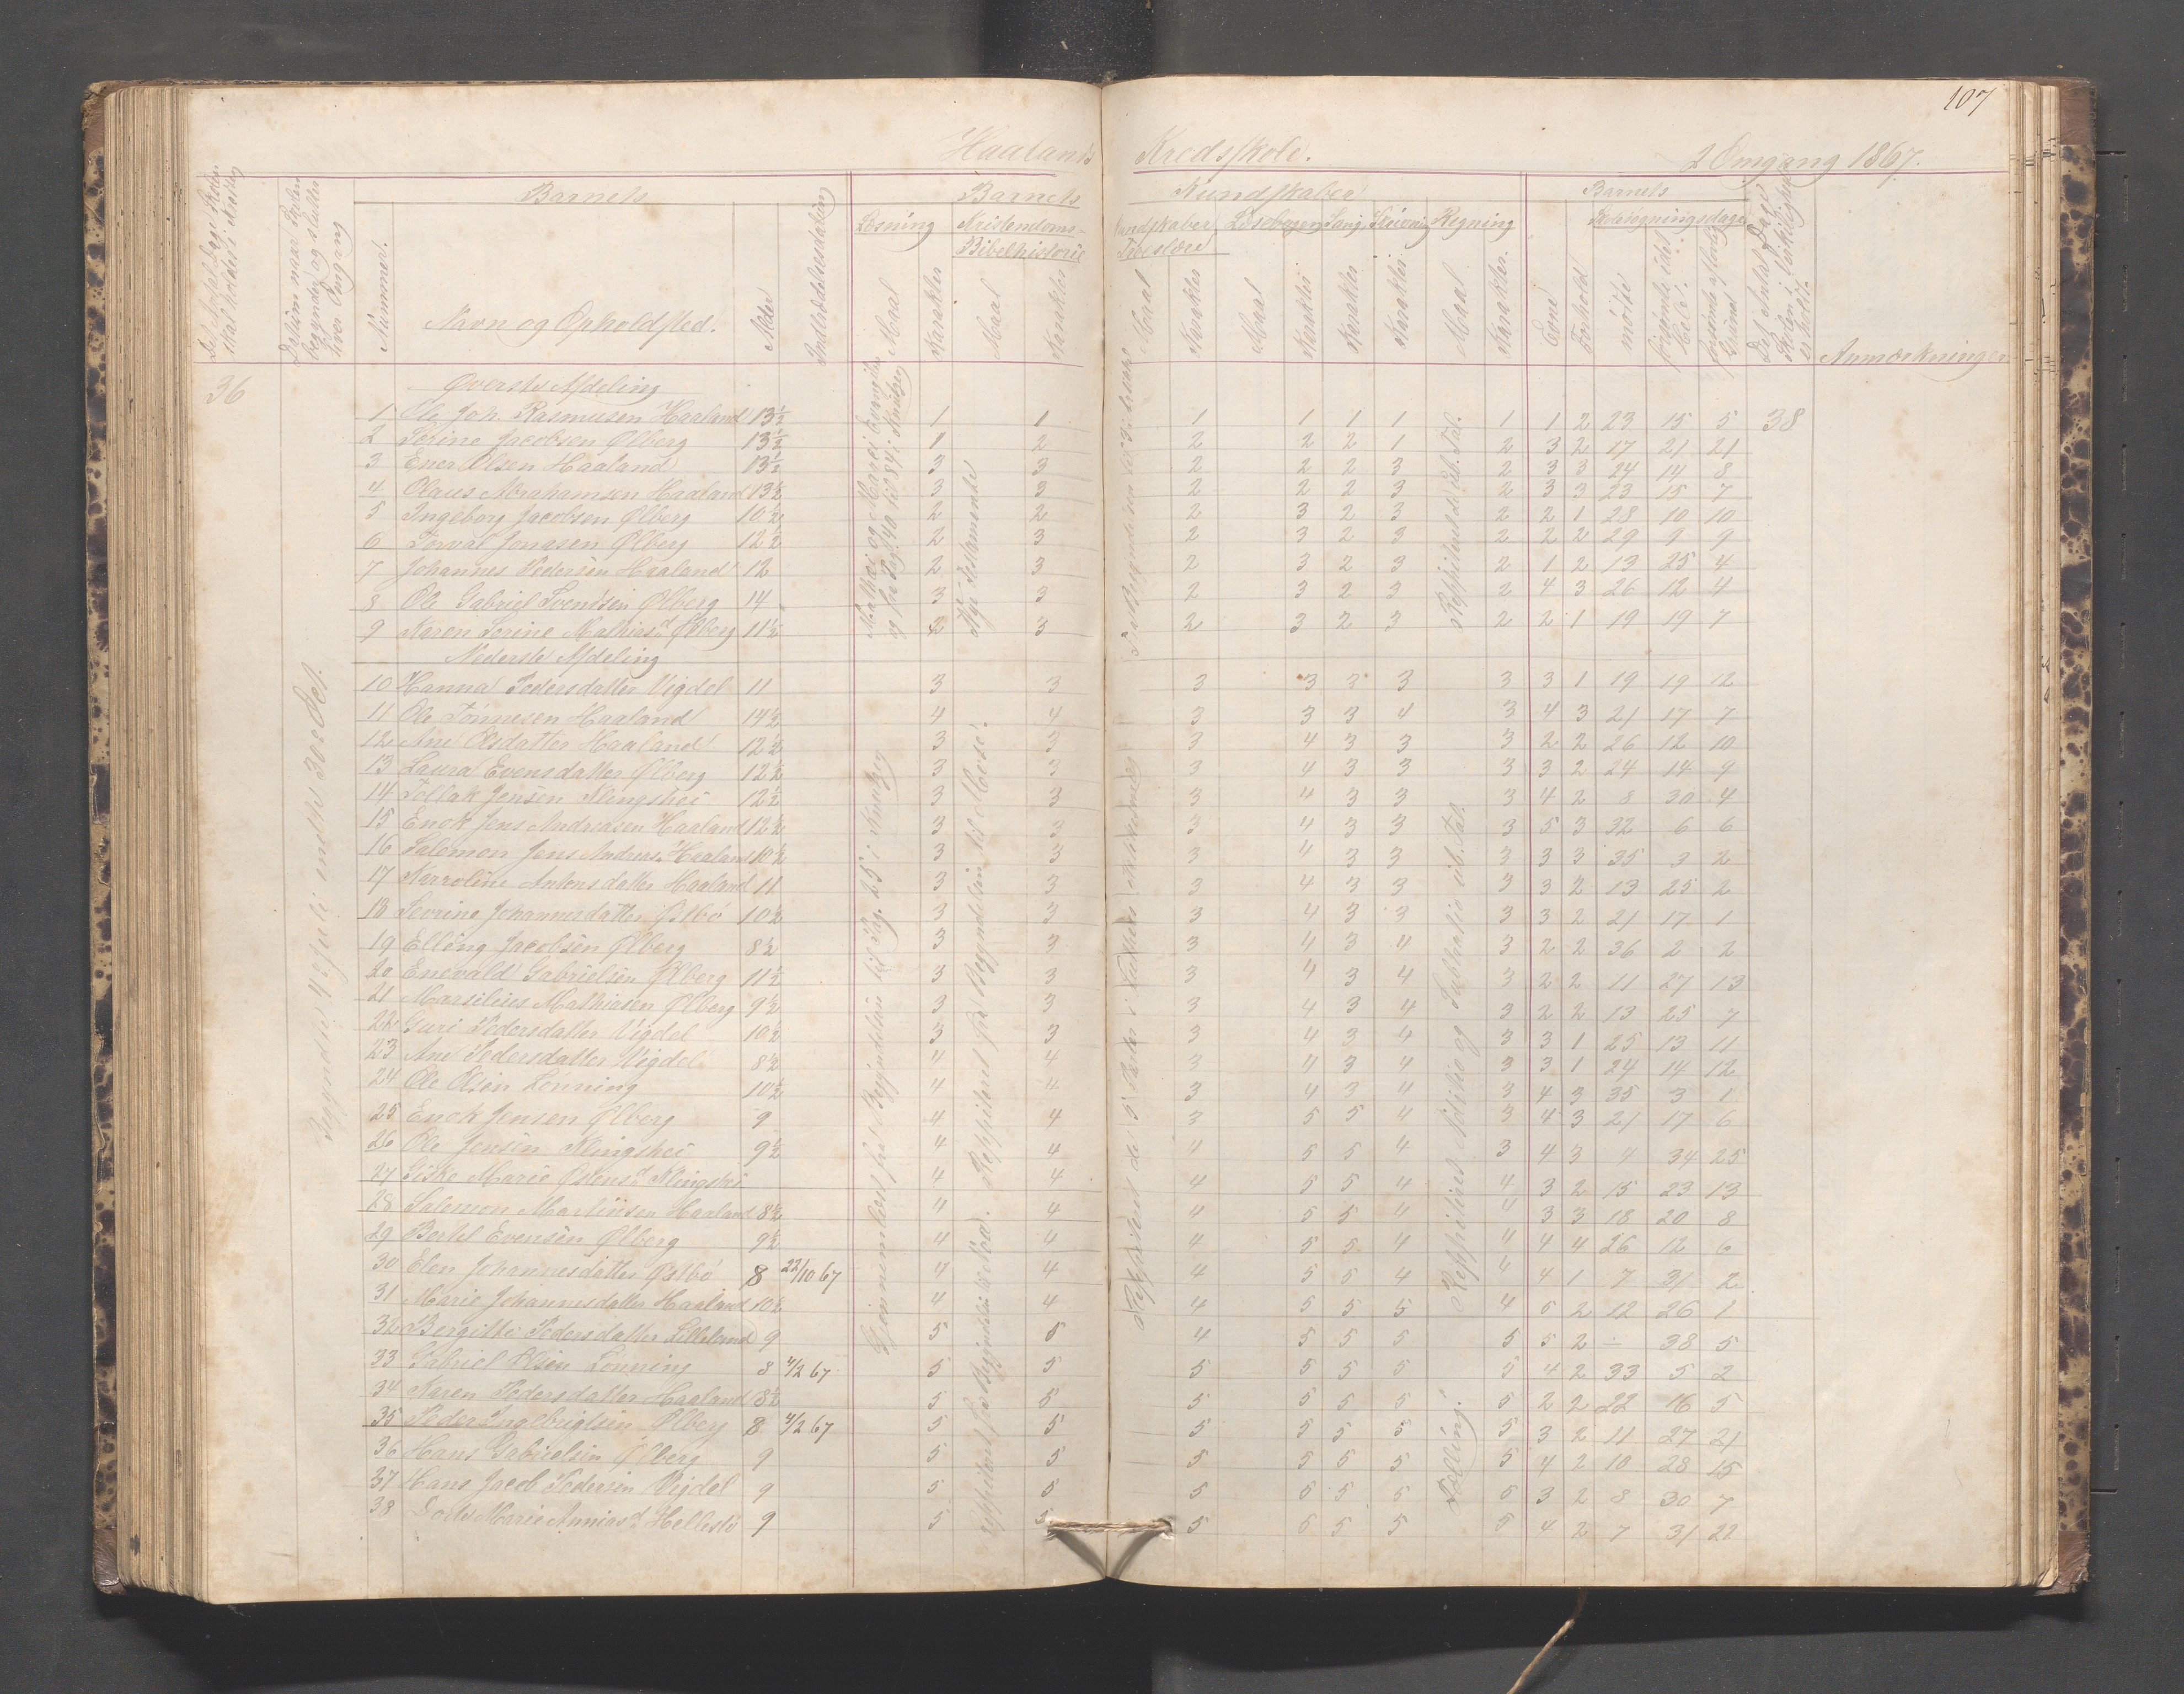 107
Haalands Kredsskole. 2 Omgang 1867.
Barnets Barnets Kundskaber Barnets
Læsning Kristendoms- Kundskaber Læsebogen Sang Skrivning Regning Skolesøgningsdage
Bibelhistorie Troeslære
Nummer. Navn og Opholdssted. Alder Indtrædelsesdatum Maal Karakter Maal Karakter Maal Karakter Maal Karakter Karakter Karakter Maal Karakter. Evne Forhold mødte Anmærkninger
36
Øverste Afdeling
1 Ole Joh. Rasmusen Haaland 13½ 1 1 1 1 1 1 1 1 2 23 15 5 38
2 Serine Jacobsen Ølberg 13½ 1 2 2 2 2 1 2 3 2 17 21 21
3 Ener Olsen Haaland 13½ 3 3 2 2 2 3 2 3 3 24 14 8
4 Olaus Abrahamsen Haaland 13½ 3 3 2 2 2 3 2 3 3 23 15 7
5 Ingeborg Jacobsen Ølberg 10½ 2 2 2 3 2 3 2 2 1 28 10 10
6 Torval Jonasen Ølberg 12½ 2 3 2 3 2 3 2 2 2 29 9 9
7 Johannes Pedersen Haaland 12 2 3 2 3 2 3 2 1 2 13 25 4
8 Ole Gabriel Svendsen Ølberg 14 3 3 2 3 2 3 2 4 3 26 12 4
9 Karen Serine Mathiasd Ølberg 11½ 2 3 2 3 2 3 2 2 1 19 19 7
Nederste Afdeling
10 Hanna Pedersdatter Vigdel 11 3 3 3 3 3 3 3 3 1 19 19 12
11 Ole Tønnesen Haaland 14½ 4 4 3 3 3 4 3 4 3 21 17 7
12 Ane Olsdatter Haaland 12½ 3 3 3 4 3 3 3 2 2 26 12 10
13 Laura Evensdatter Ølberg 12½ 3 3 3 4 3 3 3 3 2 24 14 9
14 Tollak Jensen Klingshei 12½ 3 3 3 4 3 3 3 4 2 8 30 4
15 Enok Jens Andreasen Haaland 12½ 3 3 3 4 3 3 3 5 3 32 6 6
16 Salemon Jens Andreas. Haaland 10½ 3 3 3 4 3 3 3 3 3 35 3 2
17 Karoline Antonsdatter Haaland 11 3 3 3 4 3 3 3 3 2 13 25 2
18 Severine Johannesdatter Østbø 10½ 3 3 3 4 3 3 3 3 2 21 17 1
19 Elling Jacobsen Ølberg 8½ 3 3 3 4 3 4 3 2 2 36 2 2
20 Enevald Gabrielsen Ølberg 11½ 3 3 3 4 3 4 3 2 2 11 27 13
21 Marselius Mathiasen Ølberg 9½ 3 3 3 4 3 4 3 2 2 13 25 7
22 Guri Pedersdatter Vigdel 10½ 3 3 3 4 3 4 3 3 1 25 13 11
23 Ane Pedersdatter Vigdel 8½ 4 4 3 4 3 4 3 3 1 24 14 12
24 Ole Olsen Lonning 10½ 4 4 3 4 3 4 3 4 3 35 3 1
25 Enok Jensen Ølberg 9 4 4 3 5 5 4 3 4 3 21 17 6
26 Ole Jensen Klingshei 9½ 4 4 4 5 5 4 3 4 3 4 34 25
27 Siske Marie Ostensd Klingshei 4 4 4 5 5 4 4 3 2 15 23 13
28 Salemon Martinsen Haaland 8½ 4 4 4 5 5 4 4 3 3 18 20 8
29 Bertel Evensen Ølberg 9½ 4 4 4 5 5 4 4 4 4 26 12 6
30 Elen Johannesdatter Østbø 8 22/10 67 4 4 4 5 5 4 4 4 1 7 31 2
31 Marie Johannesdatter Haaland 10½ 4 4 4 5 5 5 4 5 2 12 26 1
32 Bergitte Pedersdatter Lilleland 9 5 5 4 5 5 5 5 5 2 ÷ 38 5
33 Gabriel Olsen Lonning 8 4/2 67 5 5 5 5 5 5 5 4 2 33 5 2
34 Karen Pedersdatter Haaland 8½ 5 5 5 5 5 5 5 2 2 22 16 5
35 Peder Ingebrigtsen Ølberg 8 4/2 67 5 5 5 5 5 5 5 3 2 11 27 21
36 Hans Gabrielsen Ølberg 9 5 5 5 5 5 5 5 4 2 10 28 15
37 Hans Jacob Pedersen Vigdel 9 5 5 5 5 5 5 5 3 2 8 30 7
38 Dorte Marie Anniasd Hellestø 9 5 5 5 5 5 5 5 4 2 7 31 22
Begyndte 4 Juli endte 30 Oct.
Nye Testamente
Tælling.